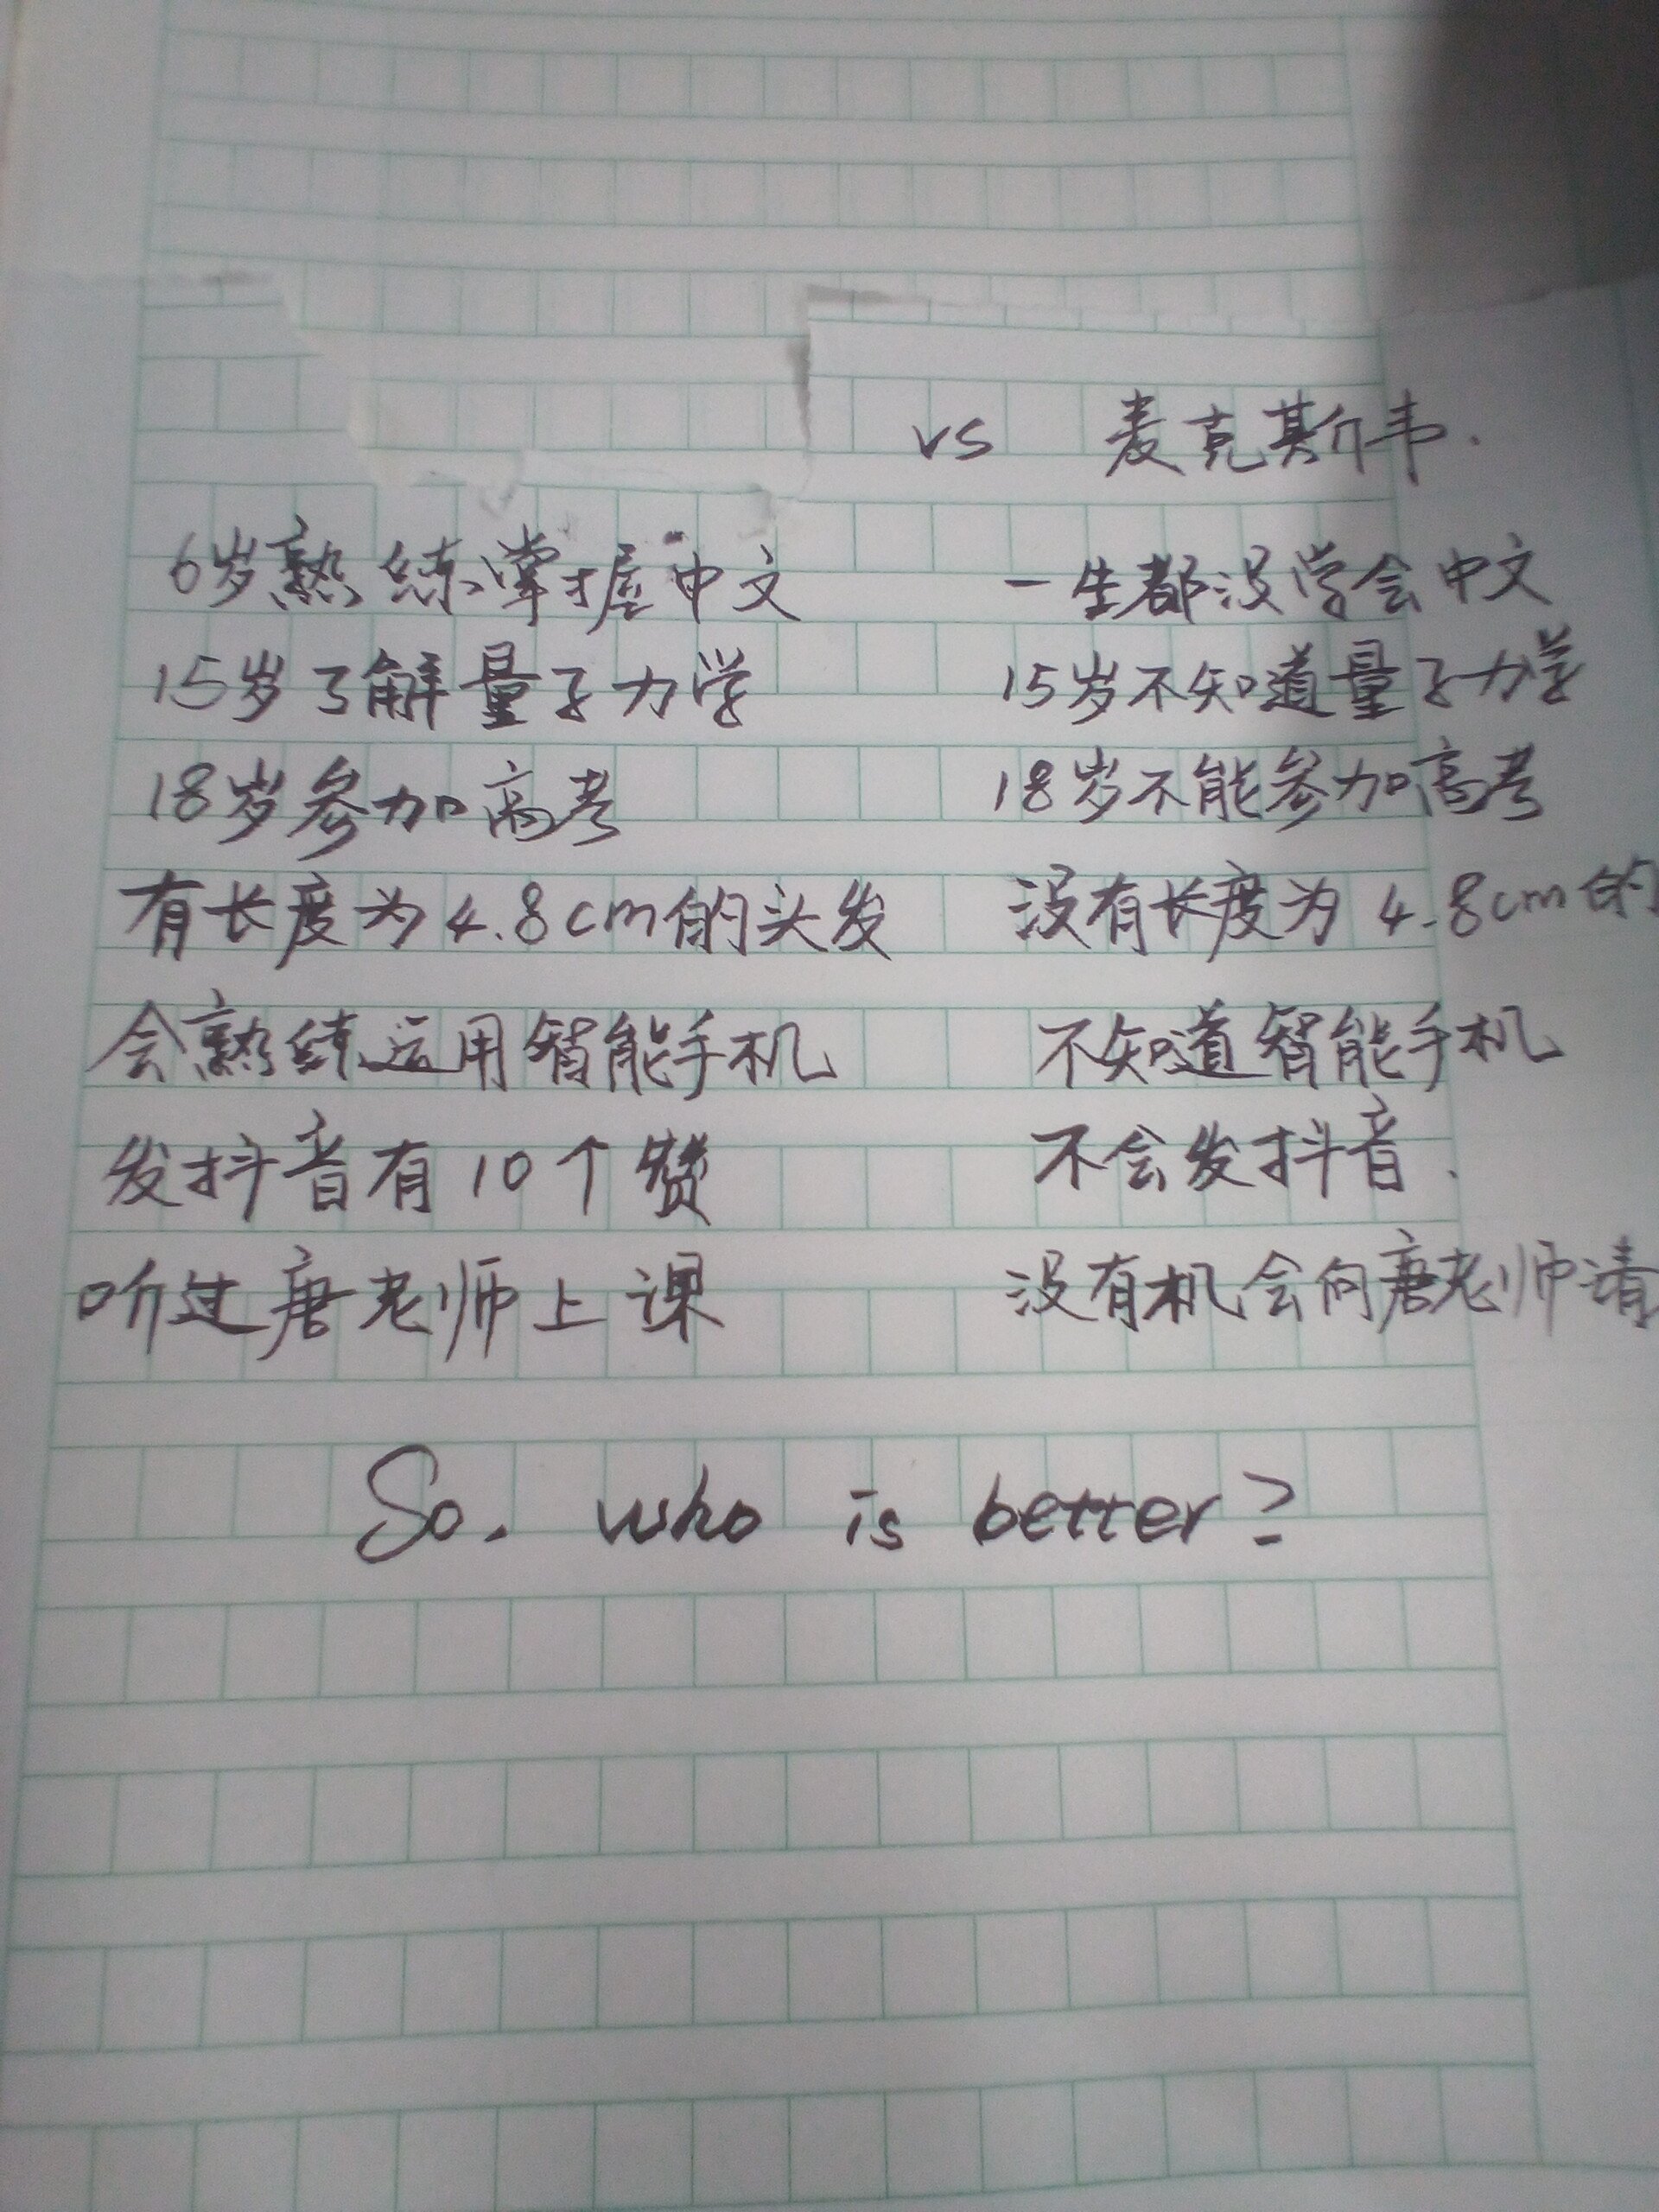 vs 麦克斯韦.
6岁熟练掌握中文 一生都没学会中文
15岁了解量子力学 15岁不知道量子力学
18岁参加高考 18岁不能参加高考
有长度为4.8cm的头发 没有长度为4.8cm的
会熟练运用智能手机 不知道智能手机
发抖音有10个赞 不会发抖音.
听过唐老师上课 没有机会向唐老师请
So. who is better?